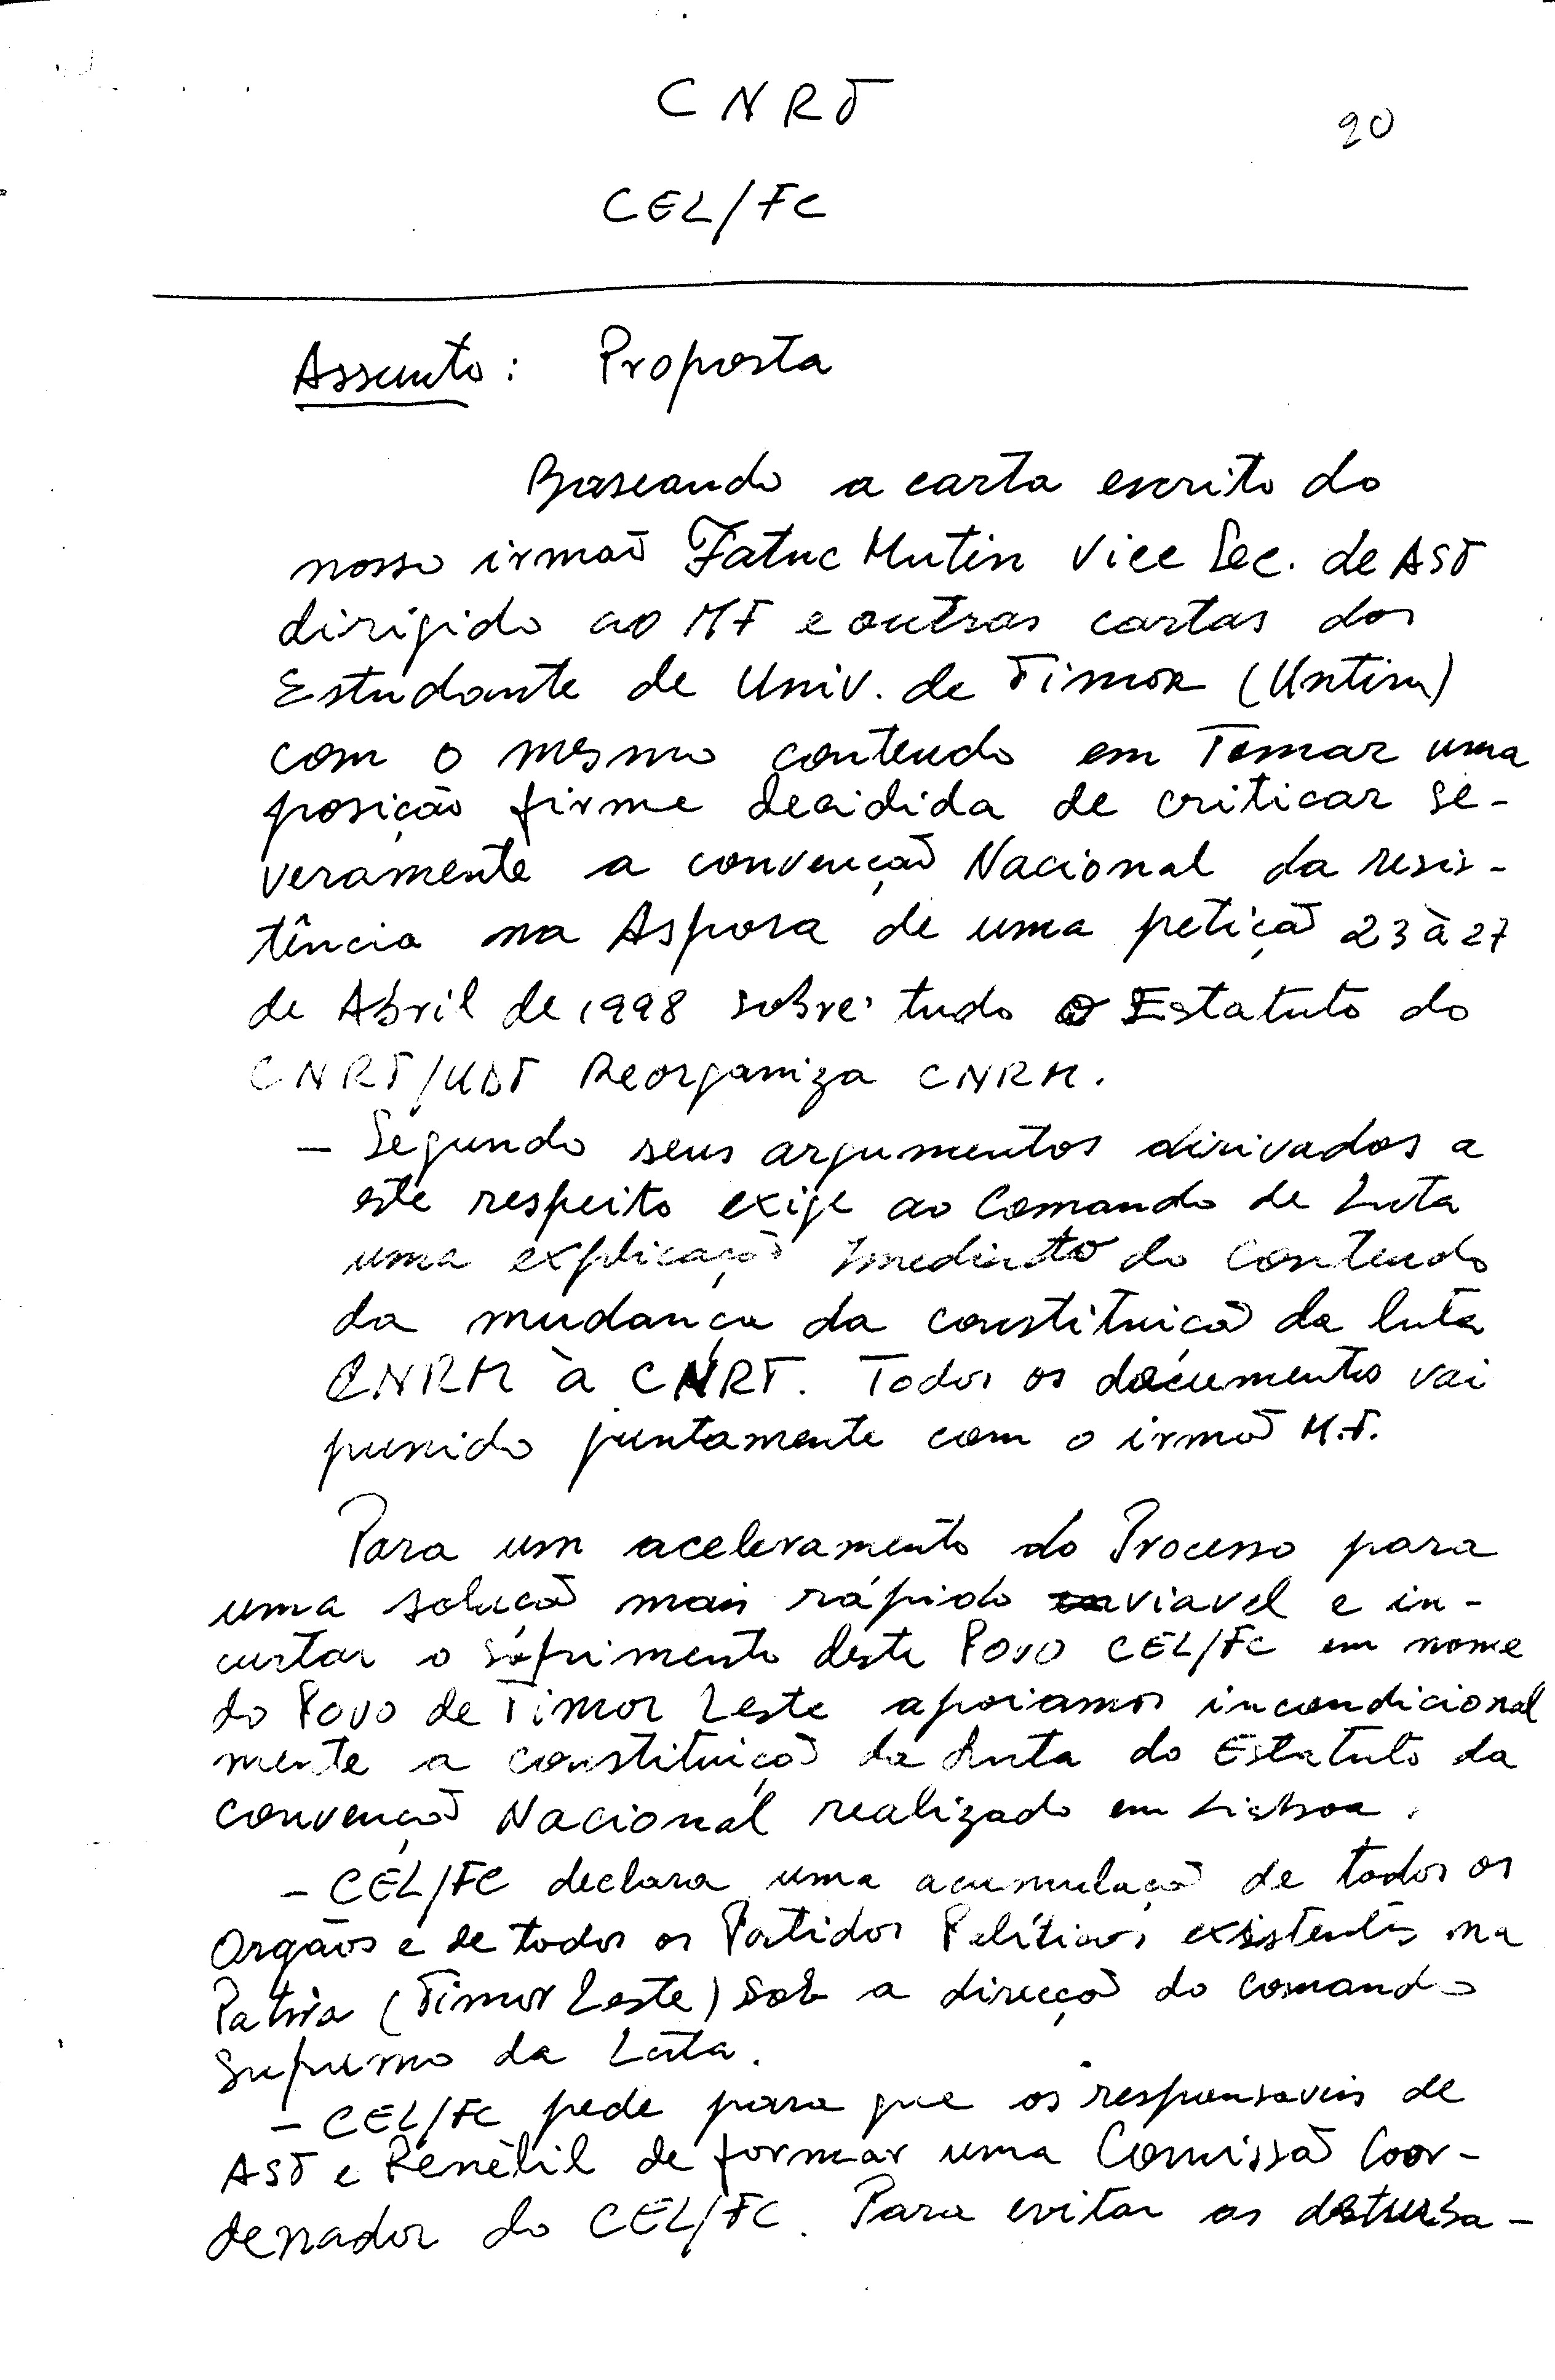 CNRT
20
CEL/FC
Assunto: Proposta
Baseando a carta escrito do
nosso irmão Fatuc Mutin Vice Sec. de AST
dirigido ao MT e outras cartas dos
Estudante de Univ. de Timor (Untim)
com o mesmo conteudo em Tomar uma
posição firme decidida de criticar se-
veramente a convenção Nacional da resis-
tência na Aspora de uma petição 23 à 27
de Abril de 1998 sobre tudo o Estatuto do
CNRT/UDT Reorganiza CNRM.
- Segundo seus argumentos dirivados a
este respeito exije ao Comando de Luta
uma explicação imediato do conteudo
da mudança da constituição da luta
CNRM à CNRT. Todos os documentos vai
punido juntamente com o irmão M.T.
Para um aceleramento do Processo para
uma solução mais rápido viavel e in-
curtar o sofrimento deste Povo CEL/FC em nome
do Povo de Timor Leste apoiamos incondicional
mente a constituição da Luta do Estatuto da
convenção Nacional realizado em Lisboa.
- CEL/FC declara uma acumulação de todos os
Orgãos e de todos os Partidos Políticos existentes na
Patria (Timor Leste) Sob a direcção do comando
Supremo da Luta.
- CEL/FC pede para que os responsaveis de
AST e Renetil de formar uma Comissão Coor-
denador do CEL/FC. Para evitar os